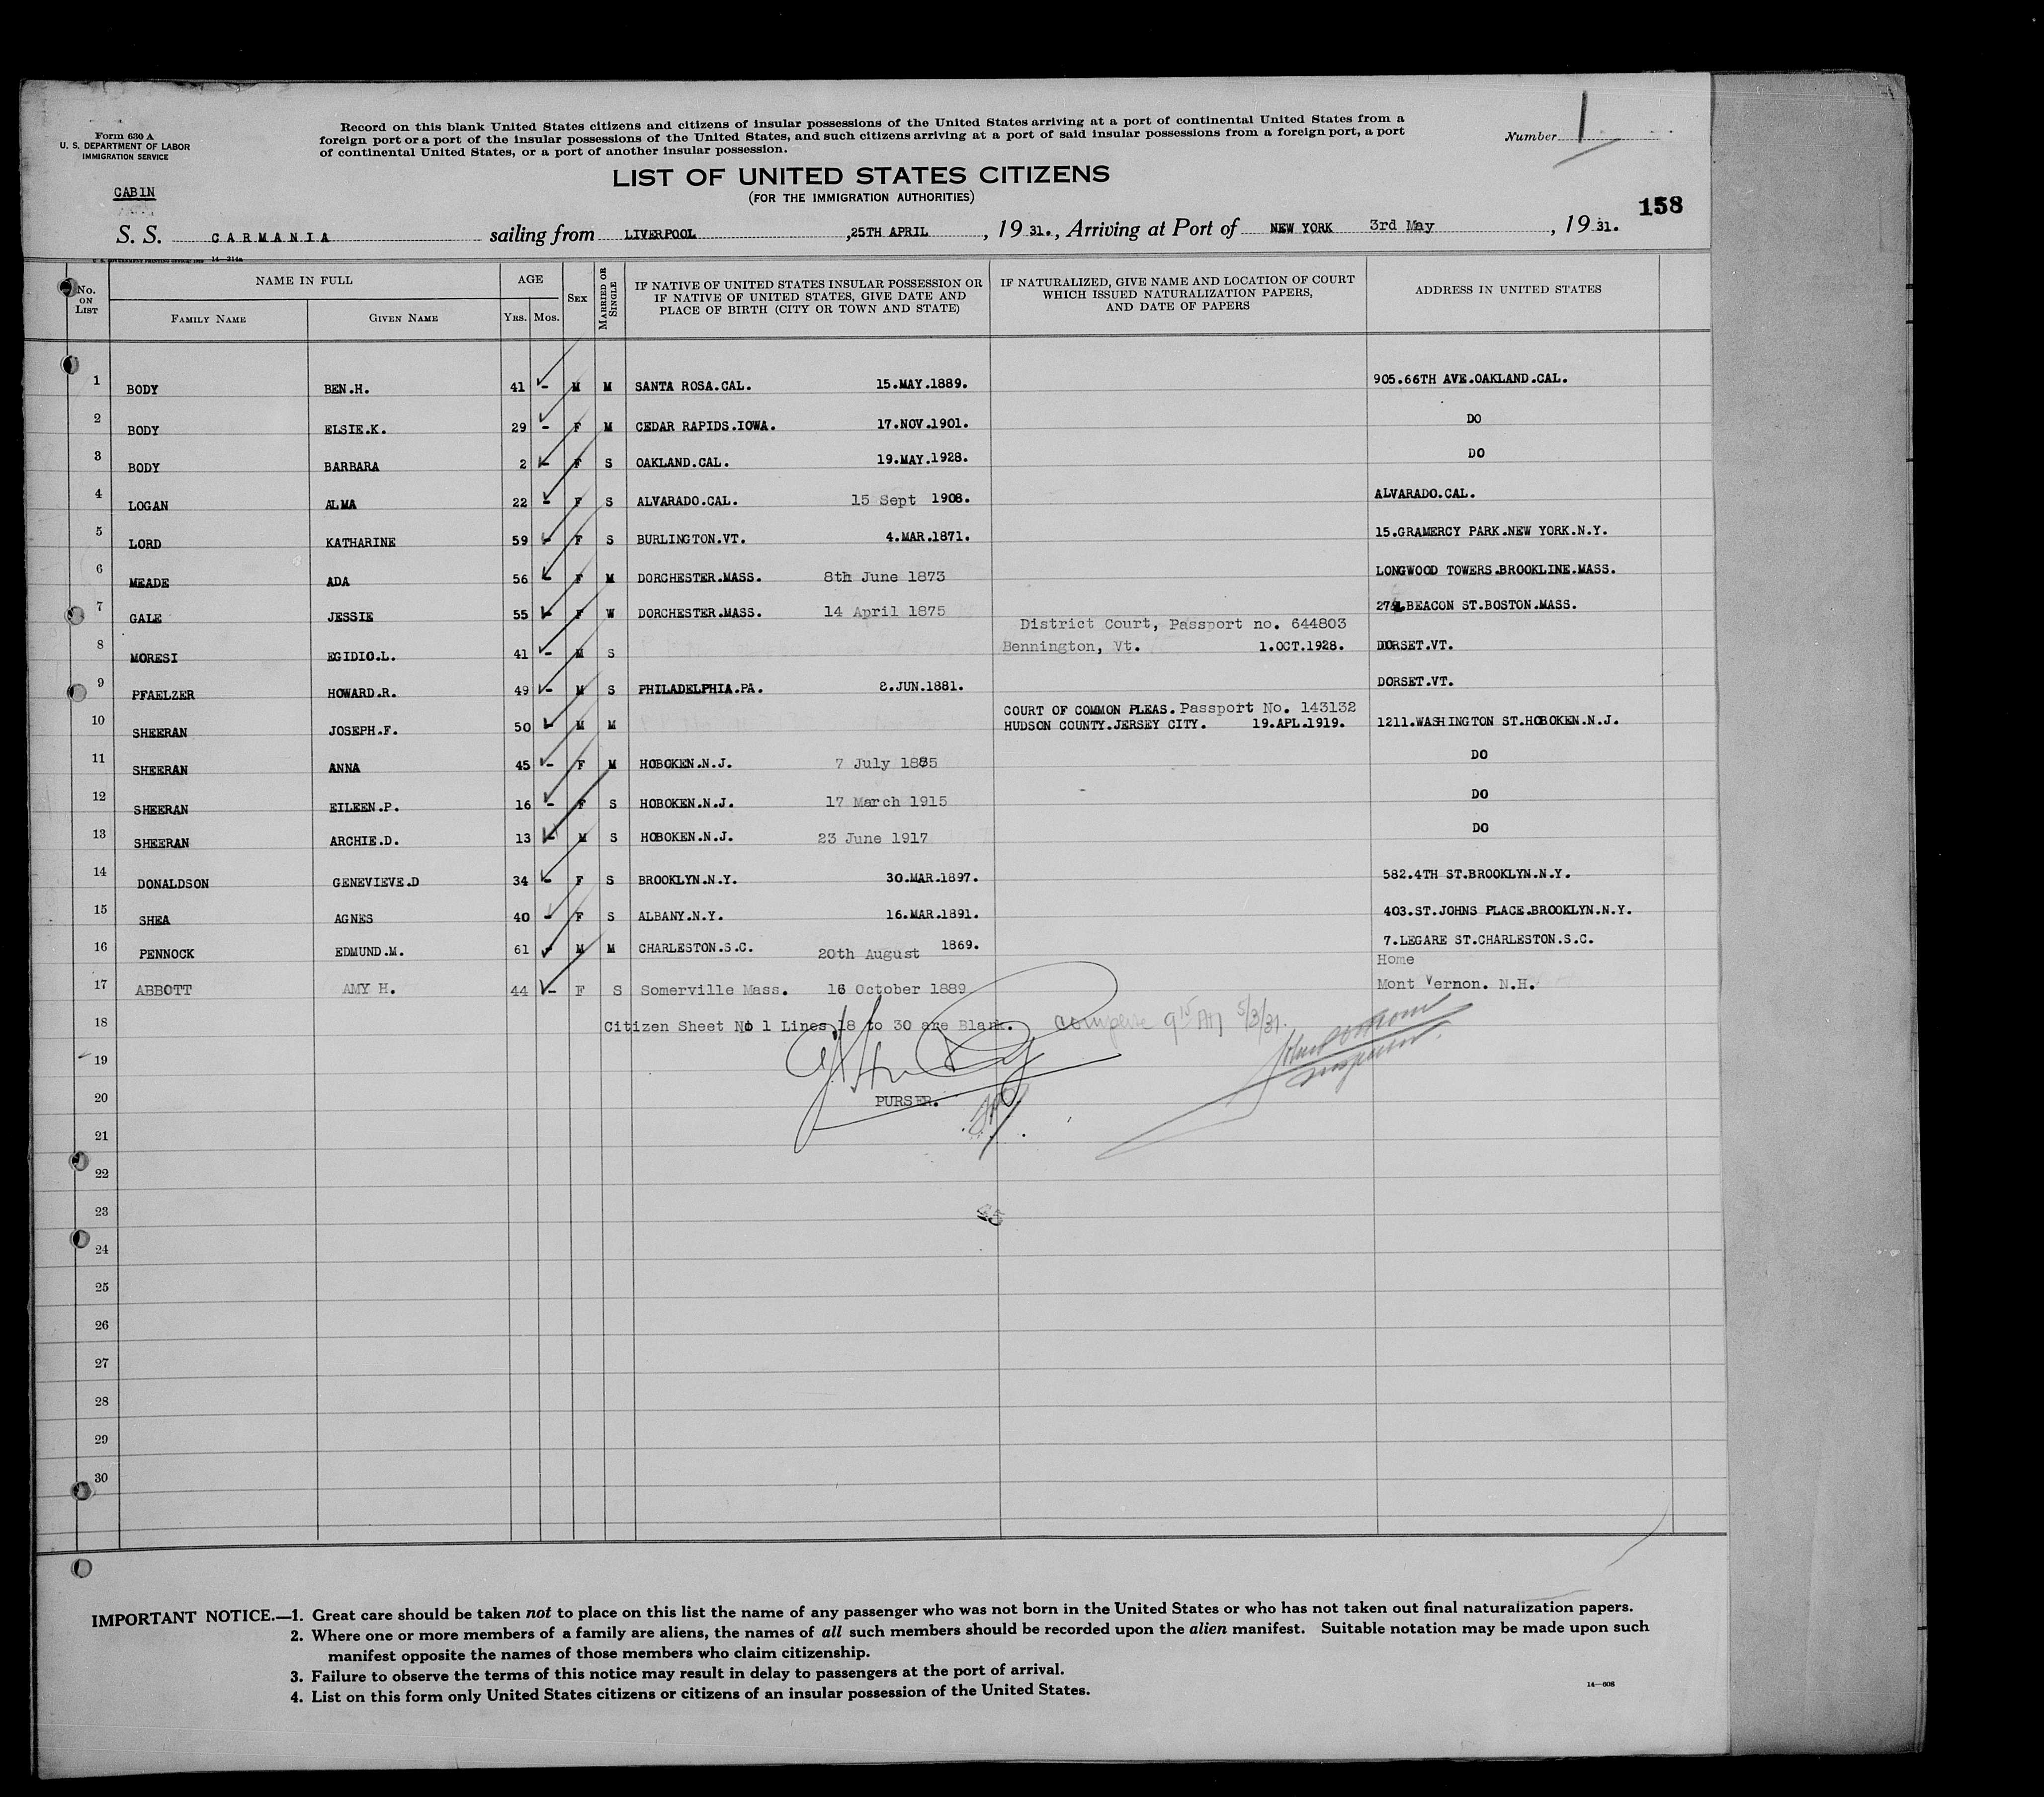 Form 630 A
U. S. DEPARTMENT OF LABOR
IMMIGRATION SERVICE
Record on this blank United States citizens and citizens of insular possessions of the United States arriving at a port of continental United States from a
foreign port or a port of the insular possessions of the United States, and such citizens arriving at a port of said insular possessions from a foreign port, a port
of continental United States, or a port of another insular possession.
Number 1
LIST OF UNITED STATES CITIZENS
(FOR THE IMMIGRATION AUTHORITIES)
CABIN
158
S. S. CARMANIA sailing from LIVERPOOL ,25TH APRIL , 19 31. , Arriving at Port of NEW YORK 3rd May , 19 31.
14—214a
No. ON LIST
NAME IN FULL
FAMILY NAME GIVEN NAME
AGE
YRS. MOS.
SEX
MARRIED OR SINGLE
IF NATIVE OF UNITED STATES INSULAR POSSESSION OR
IF NATIVE OF UNITED STATES, GIVE DATE AND
PLACE OF BIRTH (CITY OR TOWN AND STATE)
IF NATURALIZED, GIVE NAME AND LOCATION OF COURT
WHICH ISSUED NATURALIZATION PAPERS,
AND DATE OF PAPERS
ADDRESS IN UNITED STATES
1 BODY BEN.H. 41 - M M SANTA ROSA.CAL. 15.MAY.1889. 905.66TH AVE.OAKLAND.CAL.
2 BODY ELSIE.K. 29 - F M CEDAR RAPIDS.IOWA. 17.NOV.1901. DO
3 BODY BARBARA 2 - F S OAKLAND.CAL. 19.MAY.1928. DO
4 LOGAN ALMA 22 - F S ALVARADO.CAL. 15 Sept 1908. ALVARADO.CAL.
5 LORD KATHARINE 59 - F S BURLINGTON.VT. 4.MAR.1871. 15.GRAMERCY PARK.NEW YORK.N.Y.
6 MEADE ADA 56 - F M DORCHESTER.MASS. 8th June 1873 LONGWOOD TOWERS.BROOKLINE.MASS.
7 GALE JESSIE 55 - F W DORCHESTER.MASS. 14 April 1875 BEACON ST.BOSTON.MASS.
District Court, Passport no. 644803
8 MORESI EGIDIO.L. 41 - M S Bennington, Vt. 1.OCT.1928. DORSET.VT.
9 PFAELZER HOWARD.R. 49 - M S PHILADELPHIA.PA. 2.JUN.1881. DORSET.VT.
COURT OF COMMON PLEAS. Passport No. 143132
10 SHEERAN JOSEPH.F. 50 - M M HUDSON COUNTY.JERSEY CITY. 19.APL.1919. 1211.WASHINGTON ST.HOBOKEN.N.J.
11 SHEERAN ANNA 45 - F M HOBOKEN.N.J. 7 July 1885 DO
12 SHEERAN EILEEN.P. 16 - F S HOBOKEN.N.J. 17 March 1915 DO
13 SHEERAN ARCHIE.D. 13 - M S HOBOKEN.N.J. 23 June 1917 DO
14 DONALDSON GENEVIEVE.D 34 - F S BROOKLYN.N.Y. 30.MAR.1897. 582.4TH ST.BROOKLYN.N.Y.
15 SHEA AGNES 40 - F S ALBANY.N.Y. 16.MAR.1891. 403.ST.JOHNS PLACE.BROOKLYN.N.Y.
16 PENNOCK EDMUND.M. 61 - M M CHARLESTON.S.C. 20th August 1869. 7.LEGARE ST.CHARLESTON.S.C.
Home
17 ABBOTT AMY H. 44 - F S Somerville Mass. 16 October 1889 Mont Vernon. N.H.
18 Citizen Sheet No 1 Lines 18 to 30 are Blank. Complete 9 15 AM 5/3/31.
19
Inspector.
20 PURSER.
21
22
23
24
25
26
27
28
29
30
IMPORTANT NOTICE.—1. Great care should be taken not to place on this list the name of any passenger who was not born in the United States or who has not taken out final naturalization papers.
2. Where one or more members of a family are aliens, the names of all such members should be recorded upon the alien manifest. Suitable notation may be made upon such
manifest opposite the names of those members who claim citizenship.
3. Failure to observe the terms of this notice may result in delay to passengers at the port of arrival.
4. List on this form only United States citizens or citizens of an insular possession of the United States.
14—608